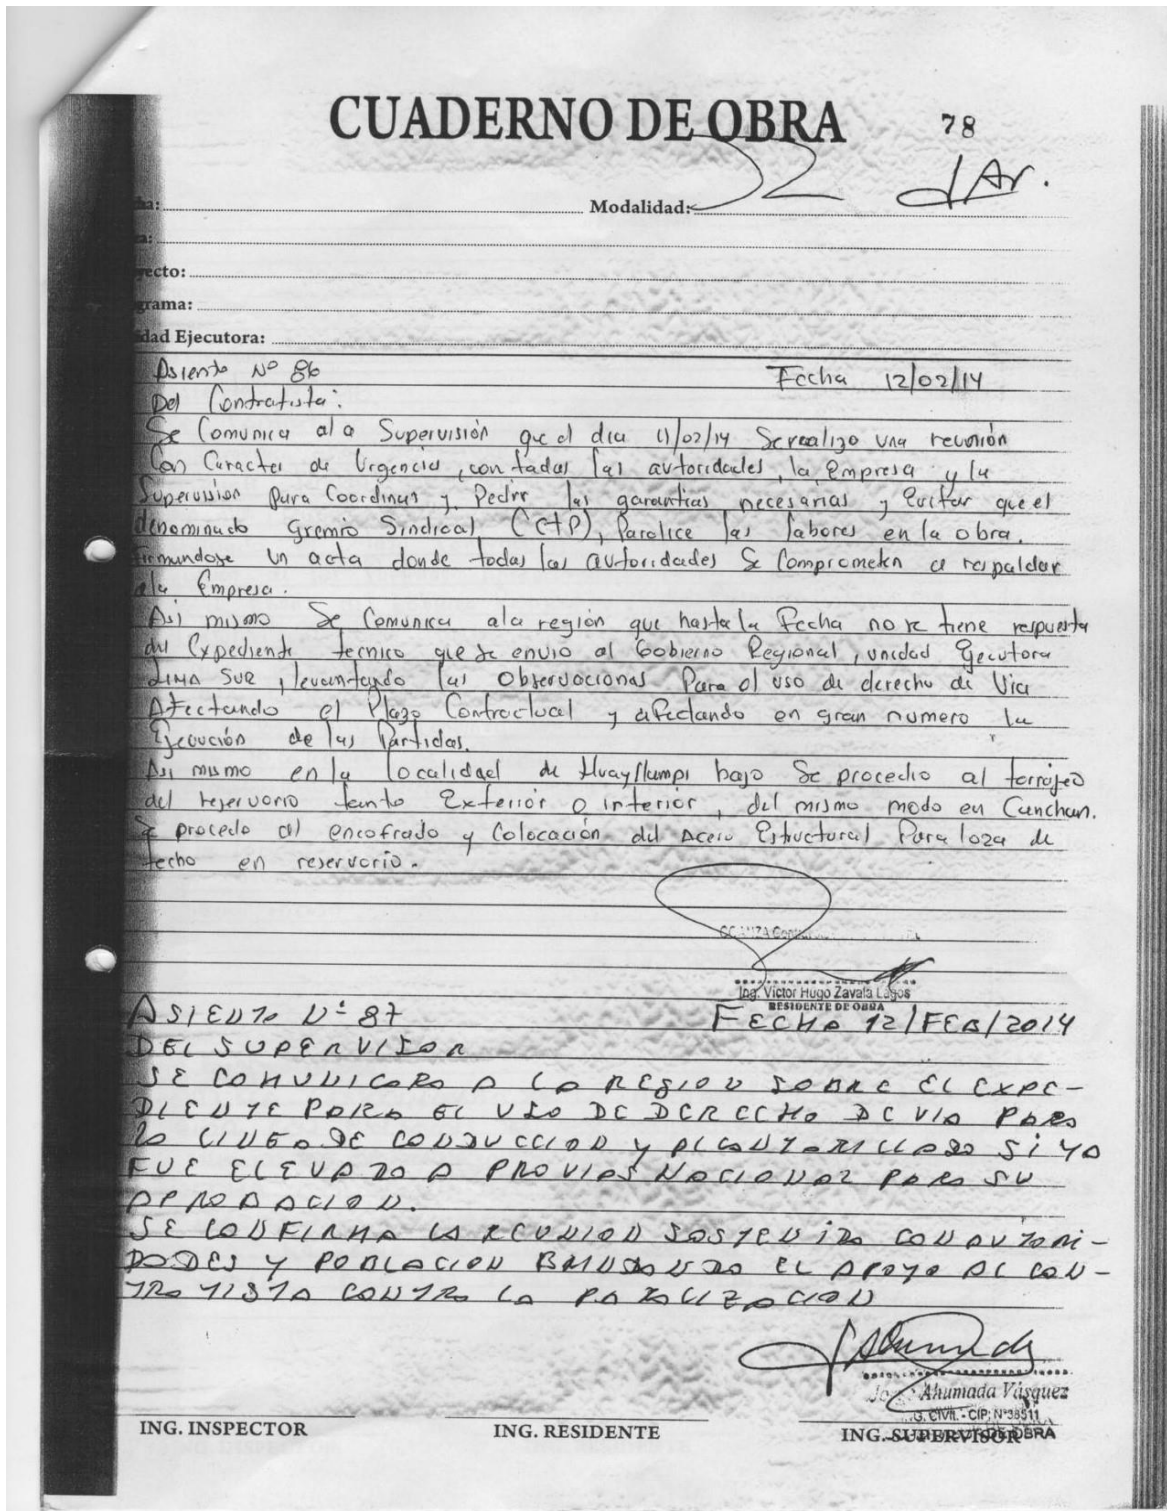 CUADERNO DE OBRA
78
32
Modalidad:
yecto:
grama:
dad Ejecutora:
Asiento Nº 86 Fecha 12/02/14
Del Contratista:
Se Comunica al a Supervisión que el dia 11/02/14 Se realizo una reunión
Con Caracter de Urgencia, con todas las autoridades, la Empresa y la
Supervision para Coordinar y Pedir las garantias necesarias y Evitar que el
denominado gremio Sindical (CTP), Paralice las labores en la obra.
Firmandose un acta donde todas las autoridades Se Comprometen a respaldar
a la Empresa.
Asi mismo Se Comunica ala región que hasta la Fecha no se tiene respuesta
del Expediente tecnico que se envio al Gobierno Regional, unidad Ejecutora
LIMA SUR, levantando las Observaciones Para el uso de derecho de Via
Afectando el Plazo Contractual y afectando en gran numero la
Ejecución de las Partidas.
Asi mismo en la localidad de Huayllampi bajo Se procedio al tarrajeo
del reservorio tanto Exterior o interior, del mismo modo en Canchan.
Se procedo al encofrado y Colocación del Acero Estructural Para loza de
techo en reservorio.
Ing. Victor Hugo Zavala Lagos
RESIDENTE DE OBRA
ASIENTO Nº 87 FECHA 12/FEB/2014
DEL SUPERVISOR
SE COMUNICARA A LA REGION SOBRE EL EXPE-
DIENTE PARA EL USO DE DERECHO DE VIA PARA
LA LINEA DE CONDUCCION Y ALCANTARILLADO SI YA
FUE ELEVADO A PROVIAS NACIONAL PARA SU
APROBACION.
SE CONFIRMA LA REUNION SOSTENIDA CON AUTORI-
DADES Y POBLACION BRINDANDO EL APOYO AL CON-
TRATISTA CONTRA LA PARALIZACION
Ahumada Vásquez
G. CIVIL - CIP: N°38511
DE OBRA
ING. INSPECTOR ING. RESIDENTE ING. SUPERVISOR